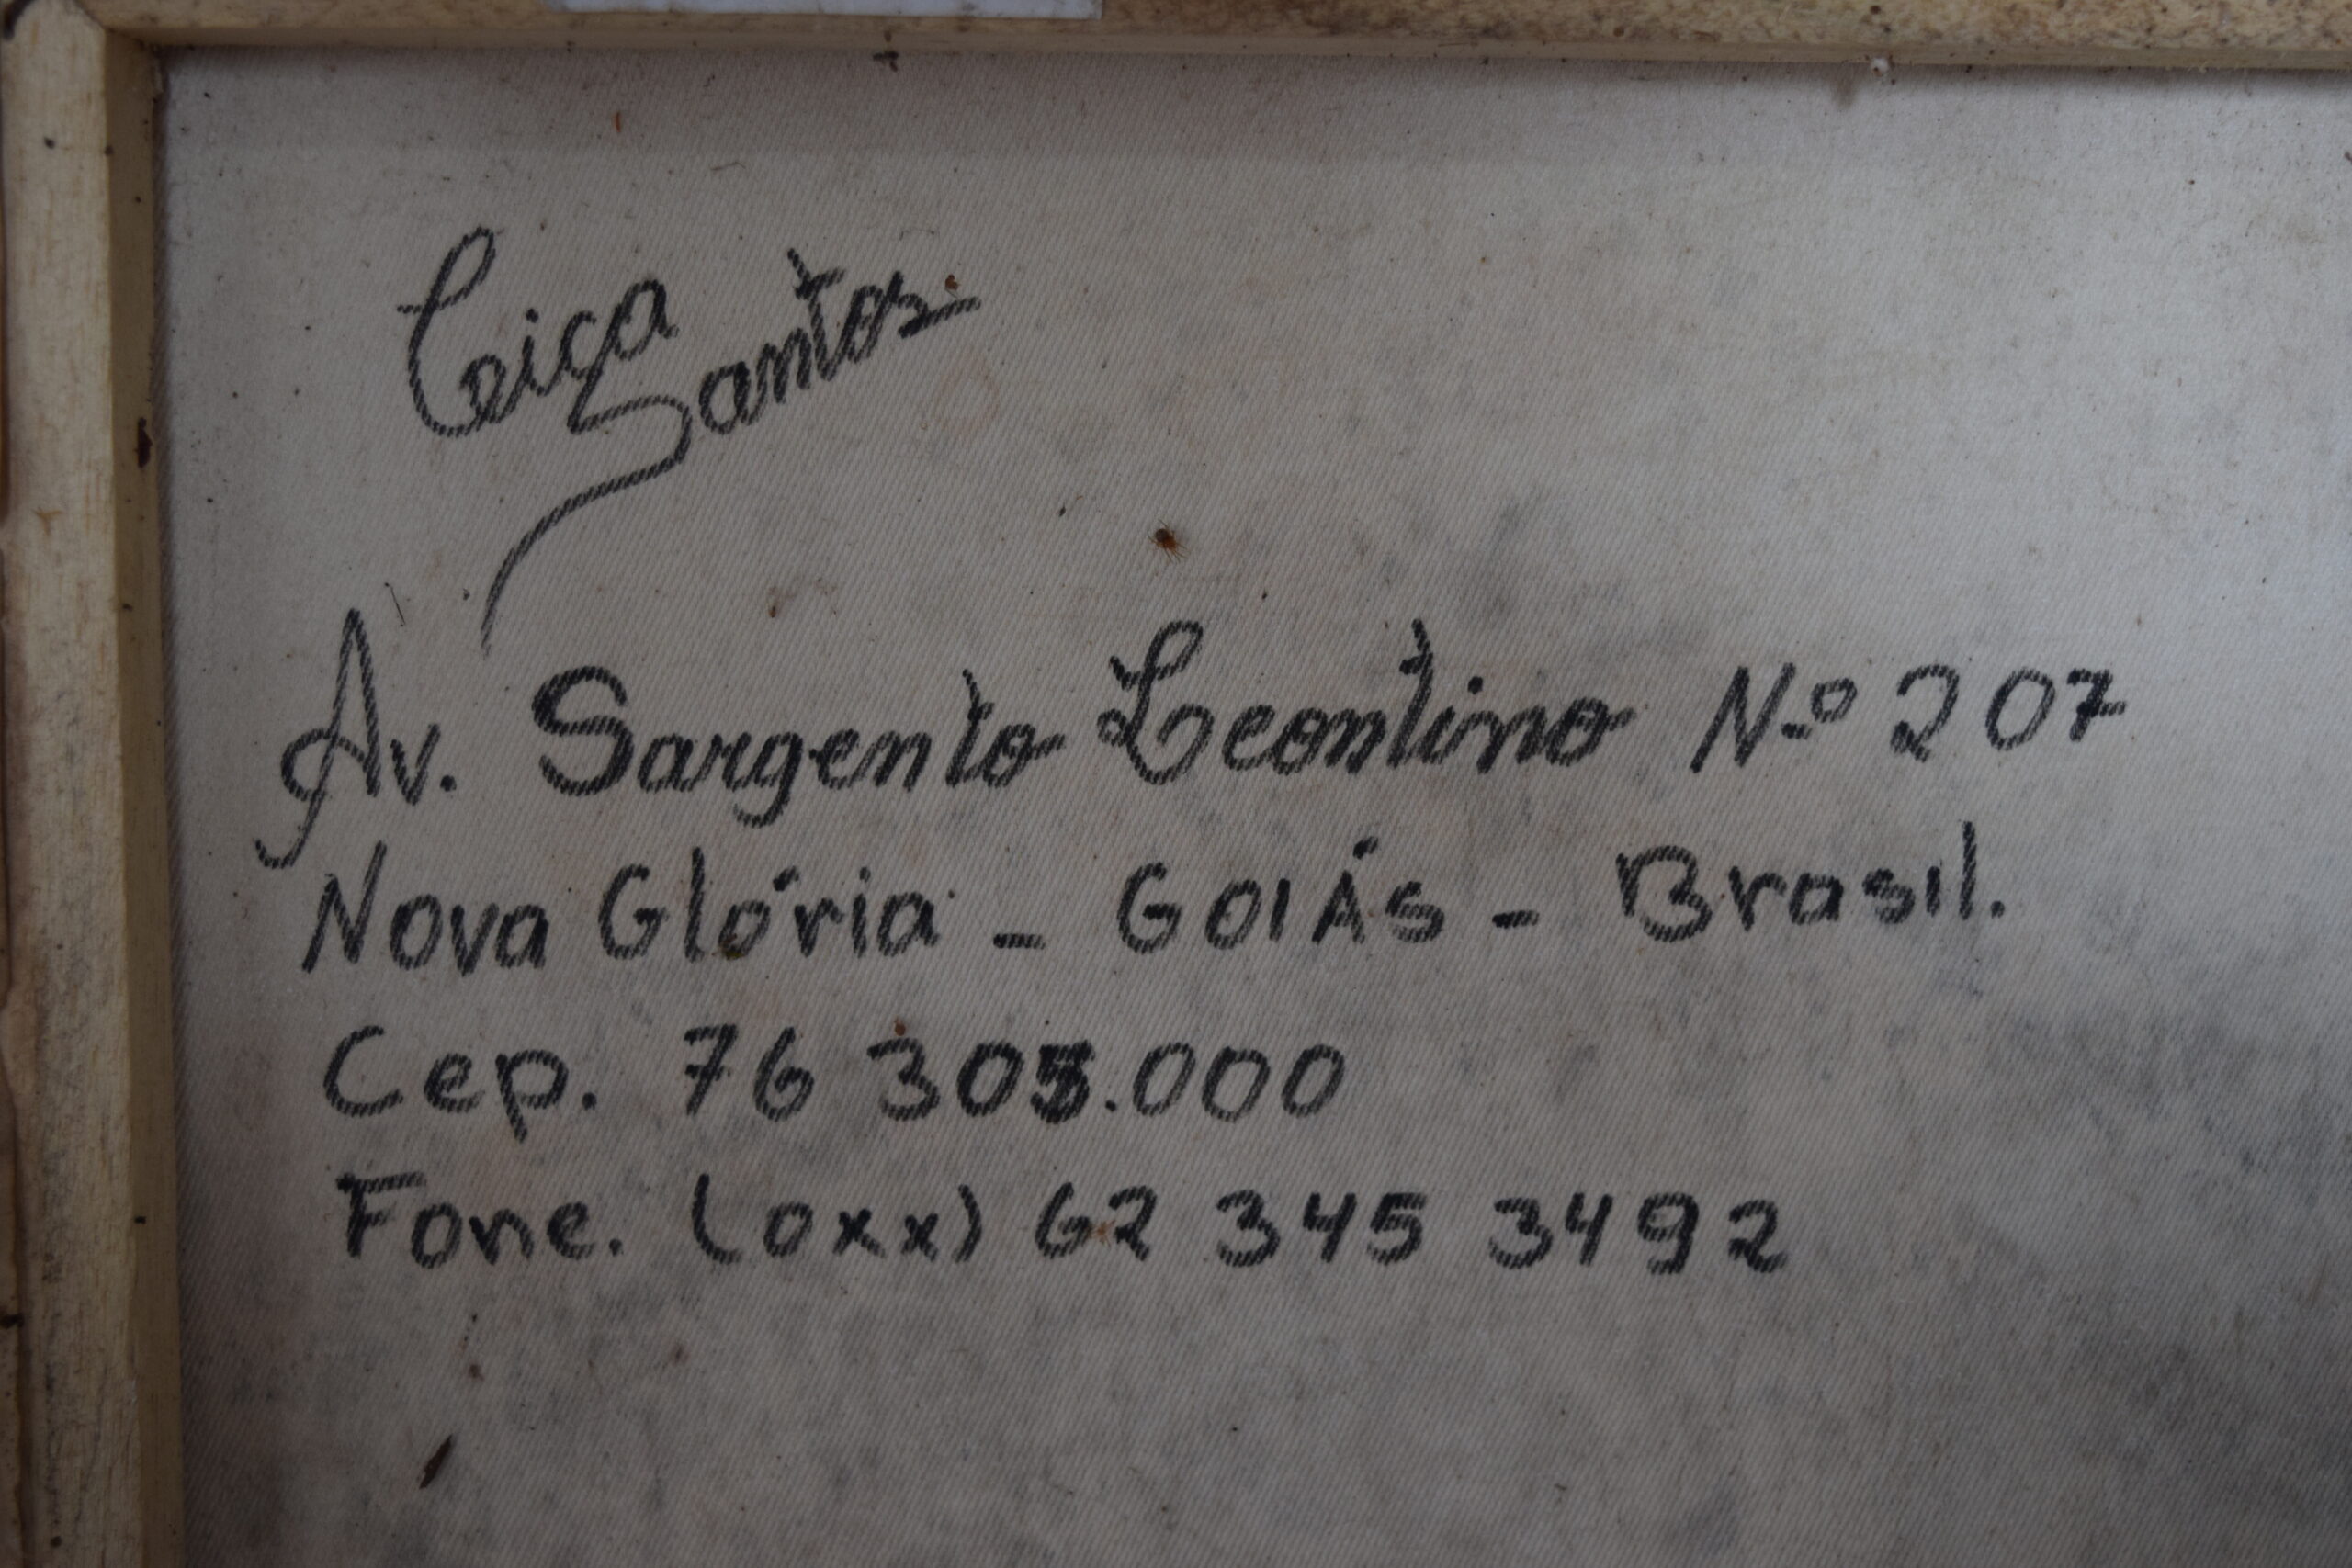 Ceiça
Santos
Av. Sargento Leontino N.º 207
Nova Glória - GOIÁS - Brasil.
Cep. 76 305.000
Fone. (0xx) 62 345 3492